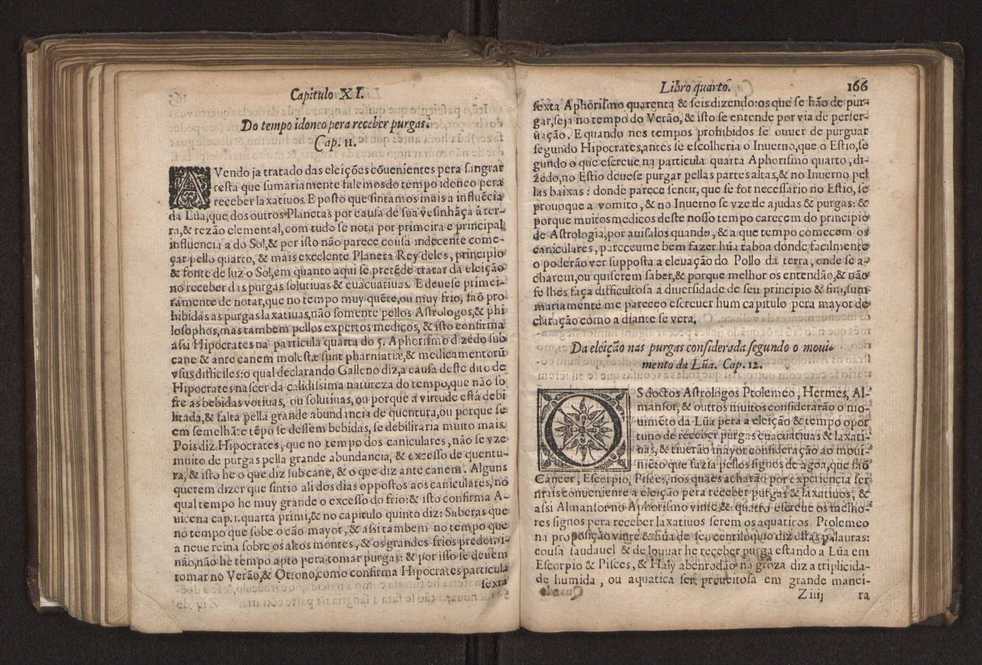 Capitulo XI.
Do tempo idoneo pera receber purgas.
Cap. 11.
AVendo ja tratado das eleições cõuenientes pera sangrar
resta que sumariamente falemos do tempo idoneo pera
receber laxatiuos. E posto que sintamos mais a influẽcia
da Lũa, que dos outros Planetas por causa de sua vesinhãça à ter-
ra, & rezão elemental, com tudo se nota por primeira e principal
influencia a do Sol, & por isto não parece cousa indecente come-
çar pello quarto, & mais excelente Planeta Rey deles, principio
& fonte de luz o Sol, em quanto aqui se pretẽde tratar da eleição
no receber das purgas solutiuas & euacuatiuas. E deuese primei-
ramente de notar, que no tempo muy quẽte, ou muy frio, saõ pro
hibidas as purgas laxatiuas, não somente pellos Astrologos, & phi
losophos, mas tambem pellos expertos medicos, & isto confirma
assi Hipocrates na particula quarta do 5. Aphorismo dizẽdo sub
cane & ante canem molestæ sunt pharmatiæ, & medicamentorũ
vsus difficiles: o qual declarando Galleno diz, a causa deste dito de
Hipocrates nascer da calidissima natureza do tempo, que não so
fre as bebidas votiuas, ou solutiuas, ou porque a virtude està debi
litada, & falta pella grande abundancia de quentura, ou porque se
em semelhãte tẽpo se dessem bebidas, se debilitaria muito mais.
Pois diz Hipocrates, que no tempo dos caniculares, não se vze
muito de purgas pella grande abundancia, & excesso de quentu-
ra, & isto he o que diz sub cane, & o que diz ante canem. Alguns
querem dizer que sintio ali dos dias oppostos aos caniculares, no
qual tempo he muy grande o excesso do frio: & isto confirma A-
uicena cap. 1. quarta primi, & no capitulo quinto diz: Saberas que
no tempo que sobe o cão mayor, & assi tambem no tempo que
a neue reina sobre os altos montes, & os grandes frios predomi-
não, não he tempo apto pera tomar purgas: & por isto se deuem
tomar no Verão, & Otrono, como confirma Hipocrates particula
sexta
Libro quarto. 166
sexta Aphorismo quarenta & seis dizendo: os que se hão de pur-
gar, seja no tempo do Verão, & isto se entende por via de perser-
uação. E quando nos tempos prohibidos se ouuer de purguar
segundo Hipocrates, antes se escolheria o Inuerno, que o Estio, se
gundo o que escreue na particula quarta Aphorismo quarto, di-
zẽdo, no Estio deuese purgar pellas partes altas, & no Inuerno pel
las baixas: donde parece sentir, que se for necessario no Estio, se
prouoque a vomito, & no Inuerno se vze de ajudas & purgas: &
porque muitos medicos deste nosso tempo carecem do principio
de Astrologia, por auisalos quando, & a que tempo comecem os
caniculares, pareceume bem fazer hũa taboa donde facilmente
o poderão ver supposta a eleuação do Pollo da terra, onde se a-
charem, ou quiserem saber, & porque melhor os entendão, & não
se lhes faça difficultosa a diuersidade de seu principio & fim, sum
mariamente me pareceo escreuer hum capitulo pera mayor de-
claração como a diante se vera.
Da eleição nas purgas considerada segundo o moui-
mento da Lũa. Cap. 12.
OS doctos Astrologos Ptolemeo, Hermes, Al-
mansor, & outros muitos considerarão o mo-
uimẽto da Lũa pera a eleição & tempo opor
tuno de receber purgas euacuatiuas & laxati-
uas, & tiuerão mayor consideração ao moui-
mẽto que fazia pellos signos de agoa, que são
Cancer, Escorpio, Pisces, nos quaes acharão por experiencia ser
mais conueniente a eleição pera receber purgas & laxatiuos, &
assi Almansor no Aphorismo vinte & quatro escreue os melho-
res signos pera receber laxatiuos serem os aquaticos. Ptolemeo
na proposição vinte & hũa de seu centiloquio diz estas palauras:
cousa saudauel & de louuar he receber purga estando a Lũa em
Escorpio & Pisces, & Haly abenrodão na groza diz a triplicida-
de humida, ou aquatica ser proueitosa em grande manei-
Z iiij ra